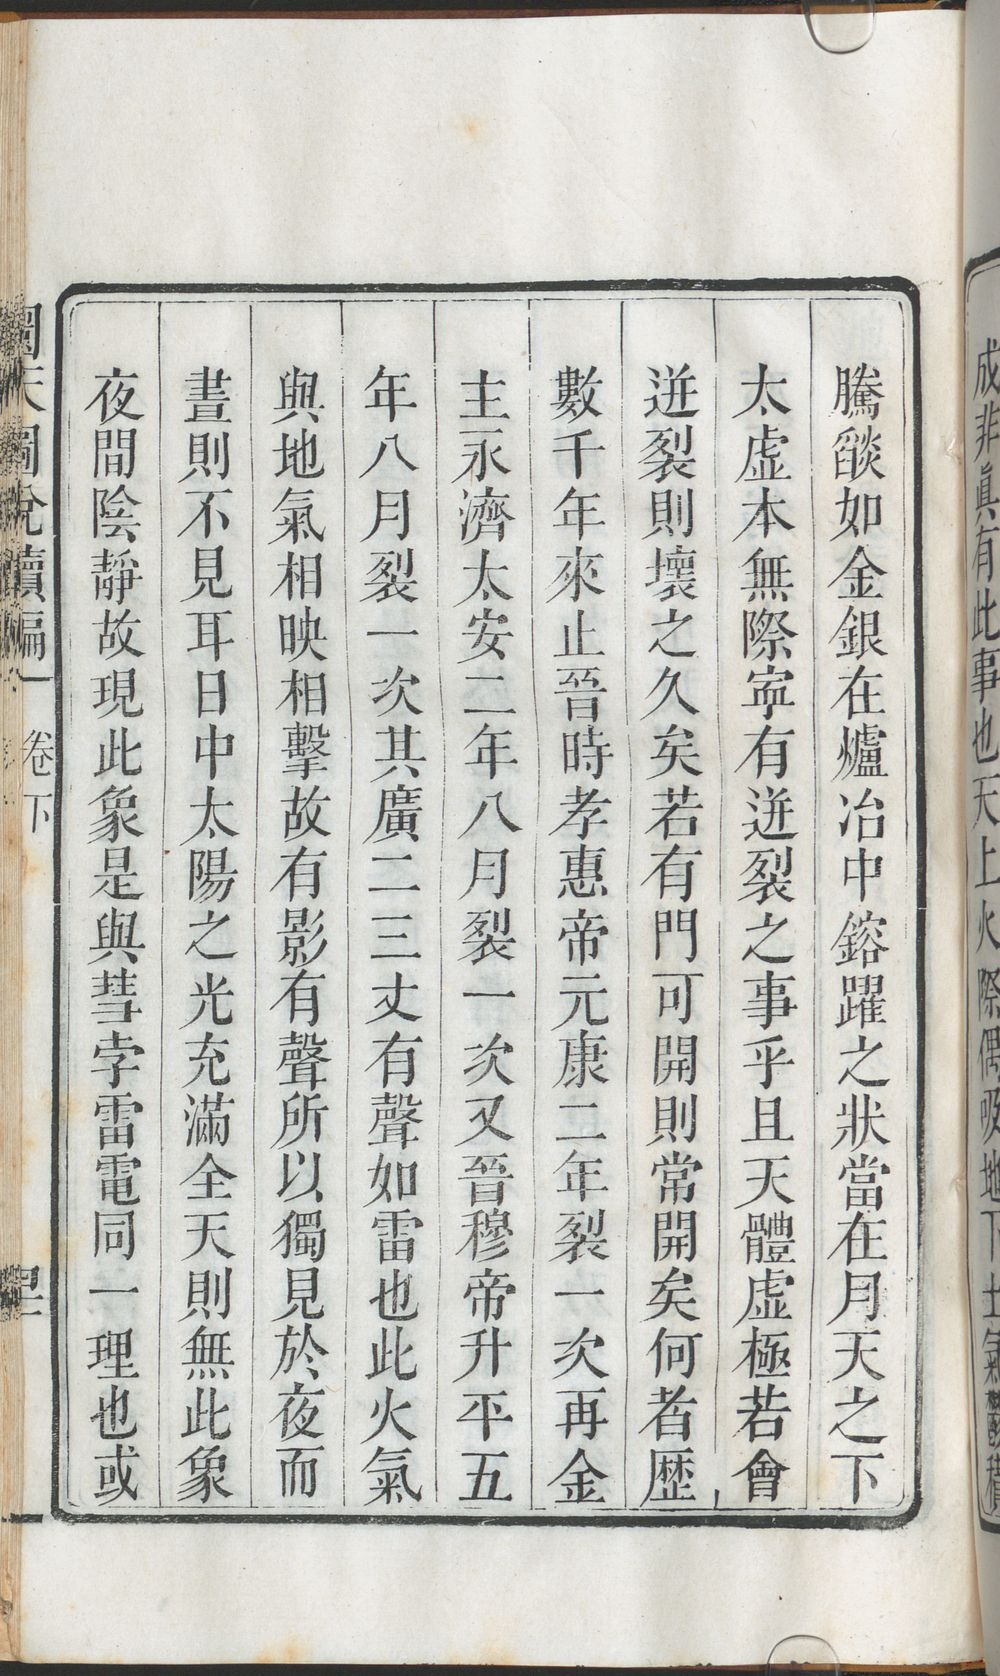 成非眞有此事也天上火際偶吸地下土氣
騰燄如金銀在爐冶中鎔躍之狀當在月天之下
太虛本無際寍有迸裂之事乎且天體虛極若會
迸裂則壞之久矣若有門可開則常開矣何者歴
數千年來止晉時孝惠帝元康二年裂一次再金
主永濟太安二年八月裂一次又晉穆帝升平五
年八月裂一次其廣二三丈有聲如雷也此火氣
與地氣相映相擊故有影有聲所以獨見於夜而
晝則不見耳日中太陽之光充滿全天則無此象
夜間陰靜故現此象是與彗孛雷電同一理也或
圜天圖說續編 卷下